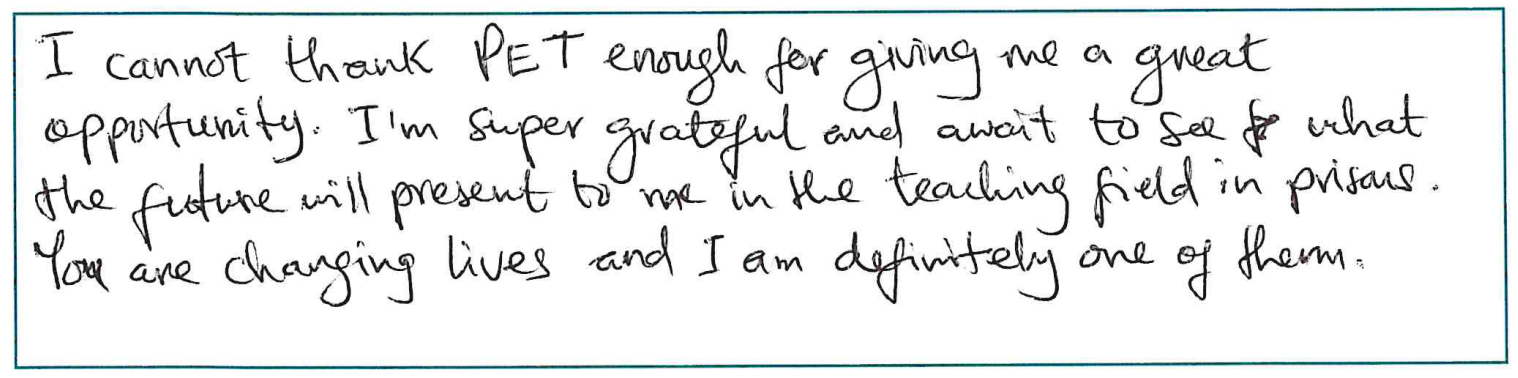 I cannot thank PET enough for giving me a great
opportunity. I'm super grateful and await to see what
the future will present to me in the teaching field in prisons.
You are changing lives and I am definitely one of them.